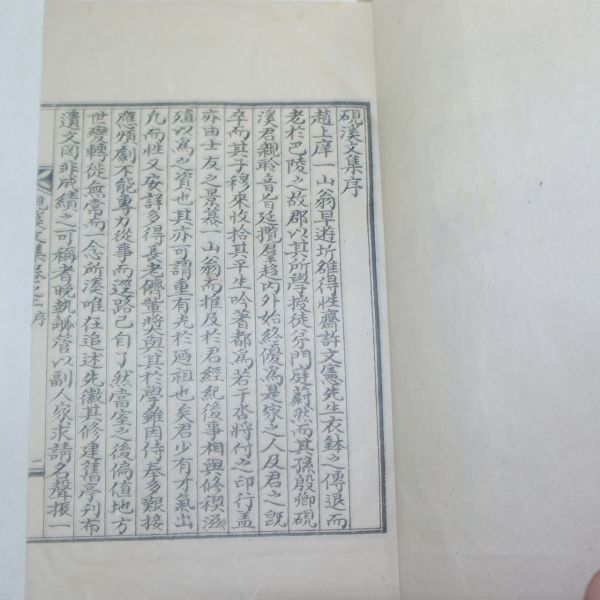 硯溪文集序
趙上庠一山翁早遊圻雄得性齋許文憲先生衣鉢之傳退而
老於巴陵之故郡以其所學授徒芬門庭蔚然而其孫殷卿硯
溪君親聆音旨廷攬羣趍內外始終優爲是家之人及君之旣
卒而其子穆來收拾其平生吟著都爲若干沓將付之印行盖
亦由士友之景慕一山翁而推及於君經紀後事相與修稧滋
殖以爲之資也其亦可謂重有光於廼祖也矣君少有才氣出
凡而性又安詳多得長老儕輩奬與其於學雖因侍奉多艱接
應煩劇不能專力從事而逕路已自了然當室之後偏値地方
世變轉徙無常而一念所湊唯在追述先徽其修建舊亭列布
遺文罔非成績之可稱者晩執 管以副人家求請名聲振一
硯溪文集卷之 序